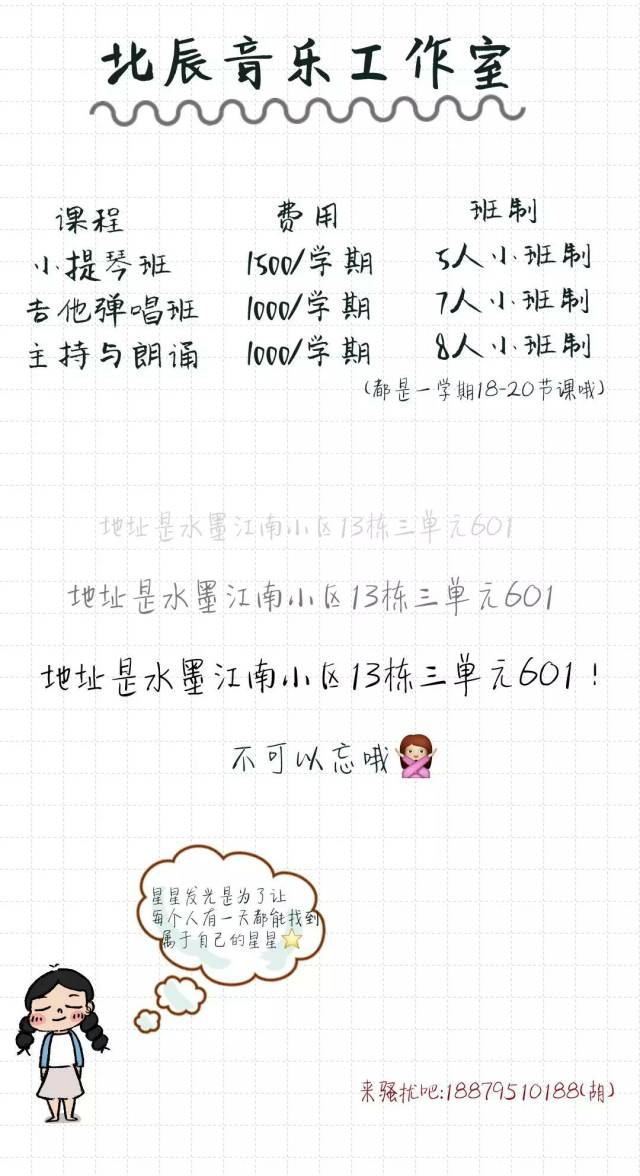 北辰音乐工作室
课程 费用 班制
小提琴班 1500/学期 5人小班制
吉他弹唱班 1000/学期 7人小班制
主持与朗诵 1000/学期 8人小班制
(都是一学期18-20节课哦)
地址是水墨江南小区13栋三单元601
地址是水墨江南小区13栋三单元601
地址是水墨江南小区13栋三单元601!
不可以忘哦🙅
星星发光是为了让
每个人有一天都能找到
属于自己的星星⭐
来骚扰吧:18879510188(胡)